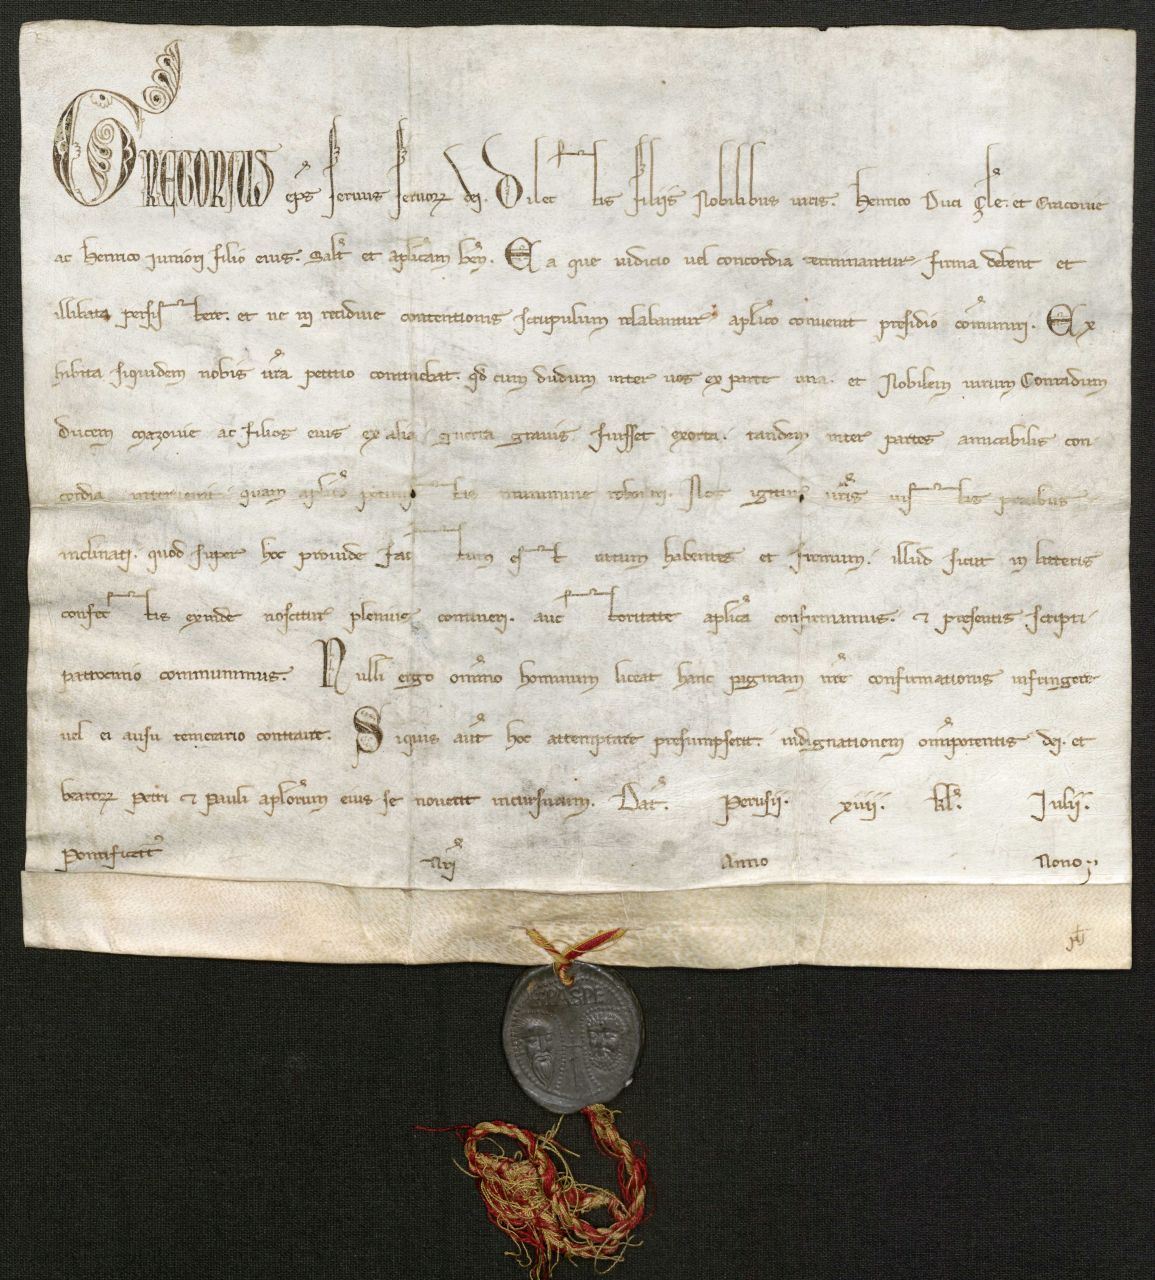 GREGORIUS ep̄s servus servoꝝ dei. Dilectis filiis Nobilibus viris. Henrico Duci Sl̄e. et Cracovie
ac Henrico iuniori filio eius. Sal̄t et aplicam ben̄. Ea que iudicio vel concordia terminantur firma debent et
illibata persistere. et ne in recidive contentionis scrupulum relabantur apl̄ico convenit presidio com̄uniri. Ex
hibita siquidem nobis vr̄a petitio continebat. qd̄ cum dudum inter vos ex parte una. et Nobilem virum Conradum
ducem Mazovie ac filios eius ex alia. guerra gravis fuisset exorta. tandem inter partes amicabilis con
cordia intervenit. quam apl̄ico petivistis munimine roborari. Nos igitur vr̄is iustis precibus
inclinati. quod super hoc provide factum est ratum habentes et firmum. illud sicut in litteris
confectis exinde noscitur plenius contineri. auctoritate apl̄ica confirmamus. ⁊ presentis scripti
patrocinio communimus. Nulli ergo om̄ino hominum liceat hanc paginam nr̄e confirmationis infringere
vel ei ausu temerario contraire. Siquis aut̄ hoc attemptare presumpserit. indignationem om̄ipotentis dei. et
beatoꝝ Petri ⁊ Pauli apl̄orum eius se noverit incursurum. Dat̄. Perusii. xiiii. kl̄. Iulii.
Pontificat̄ Nr̄i Anno Nono
SPASPE